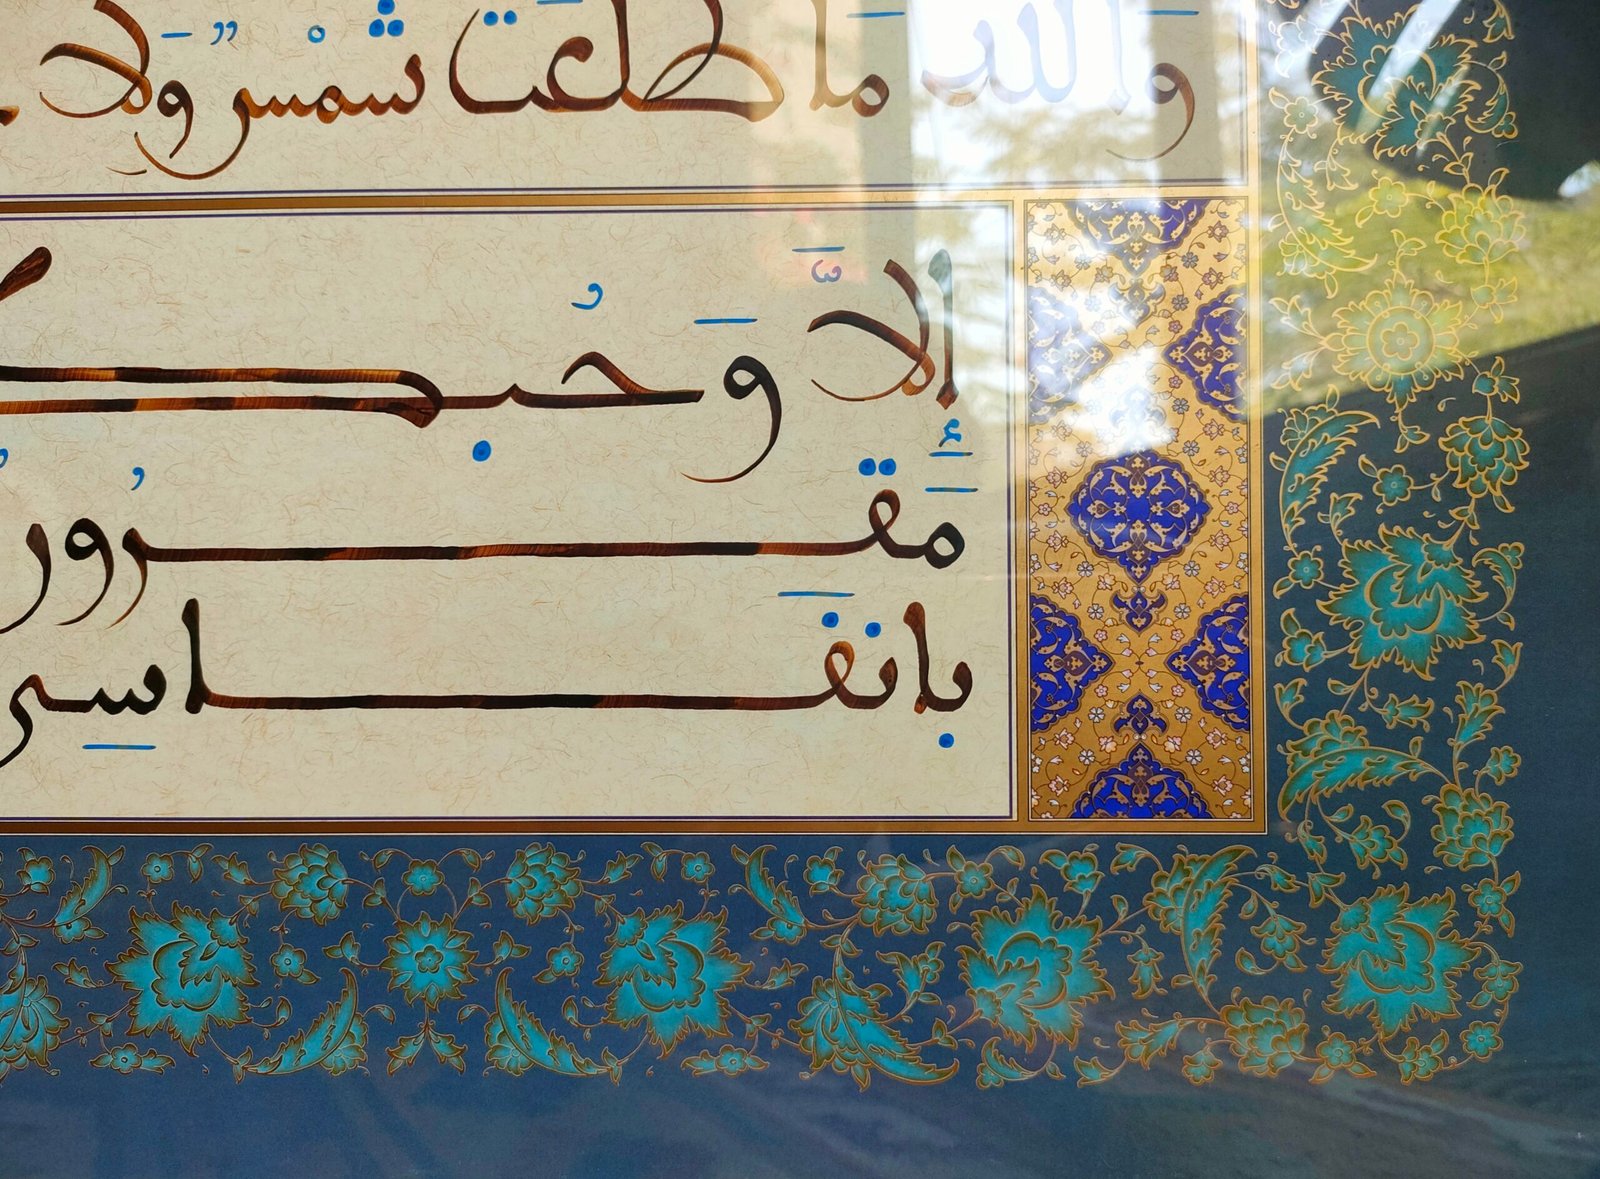 والله مَا طلعَت شَمْسٌ وَلا
إِلّا وَحُبك
مَقرُون
بِانفَاسِي